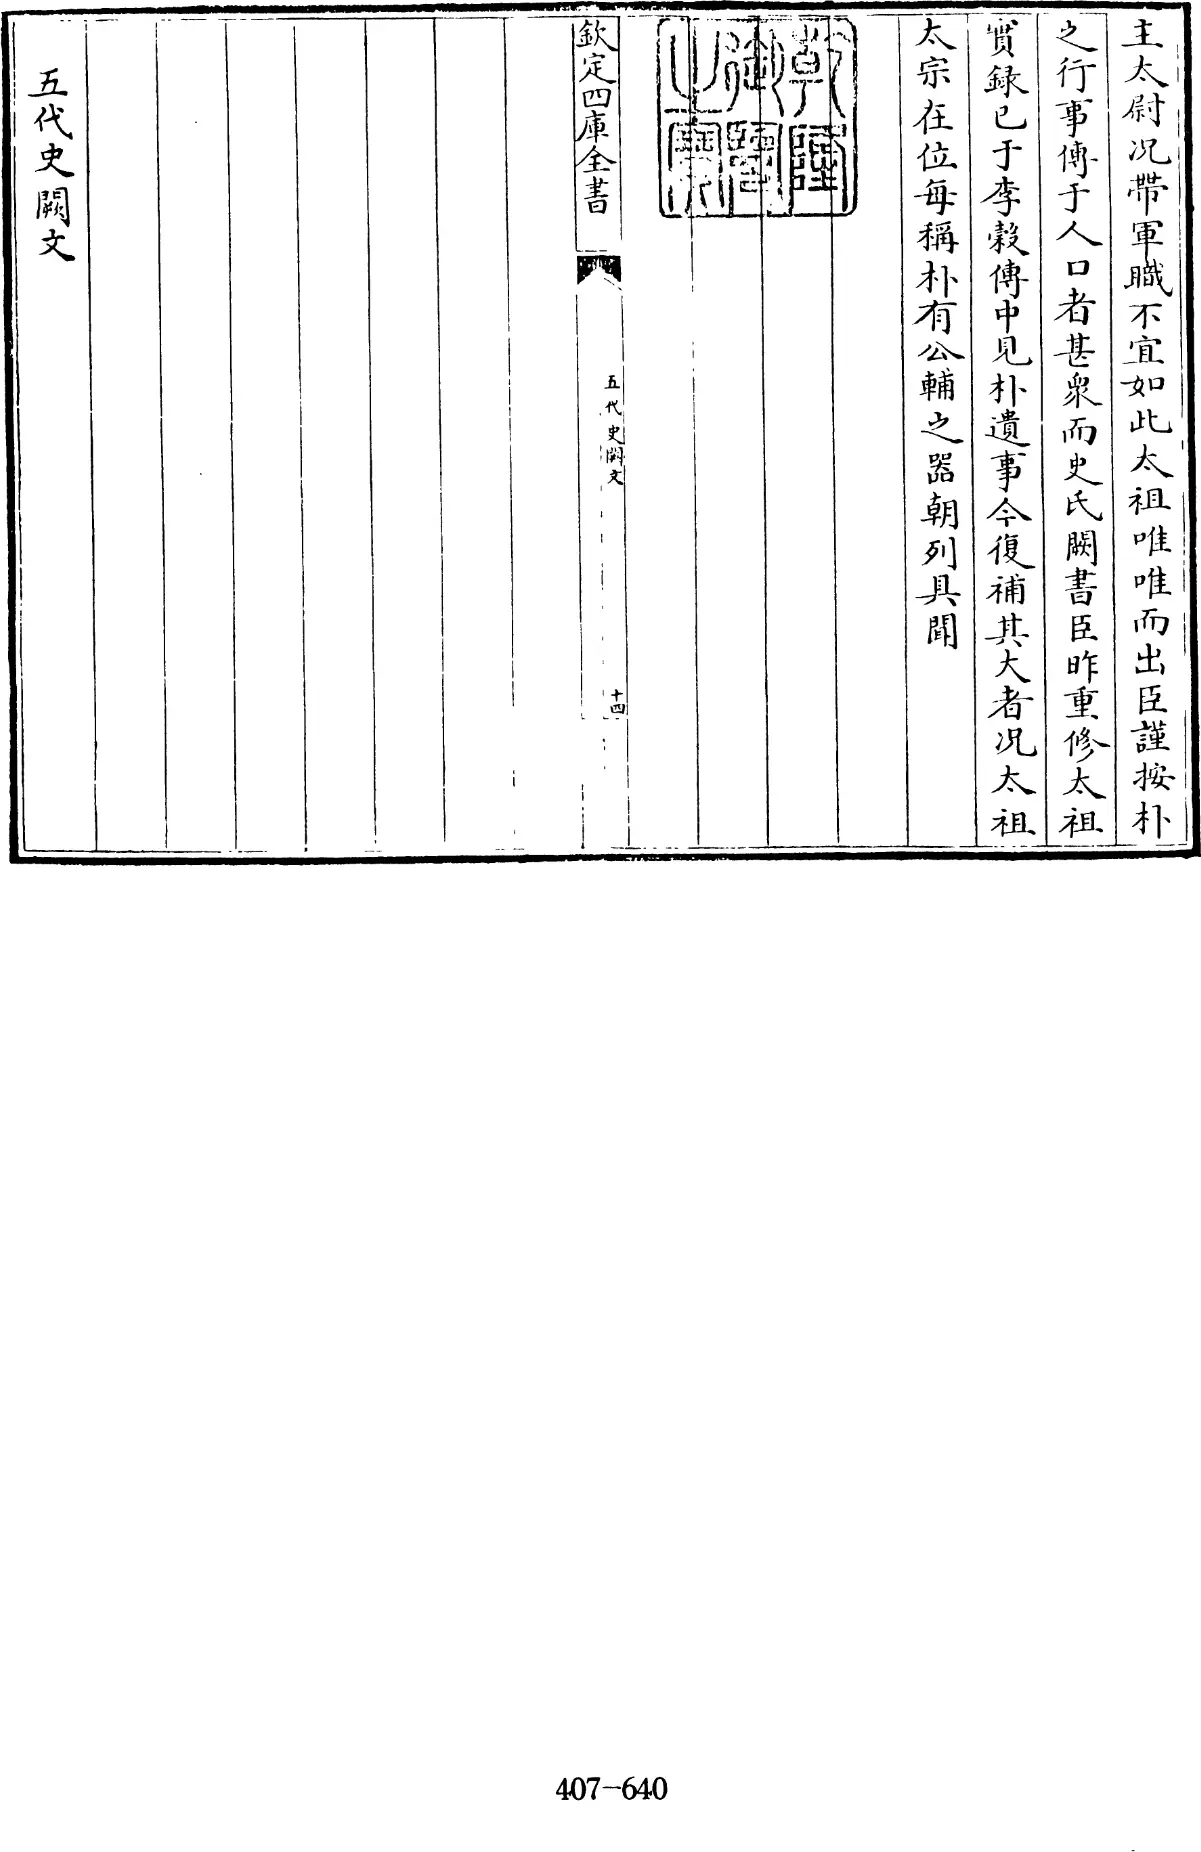 主太尉况帶軍職不宜如此太祖唯唯而出臣謹按朴
之行事傳于人口者甚衆而史氏闕書臣昨重修太祖
實録已于李穀傳中見朴遺事今復補其大者况太祖
太宗在位每稱朴有公輔之器朝列具聞
乾隆御覽之寶
欽定四庫全書
五代史闕文
十四
五代史闕文
407-640